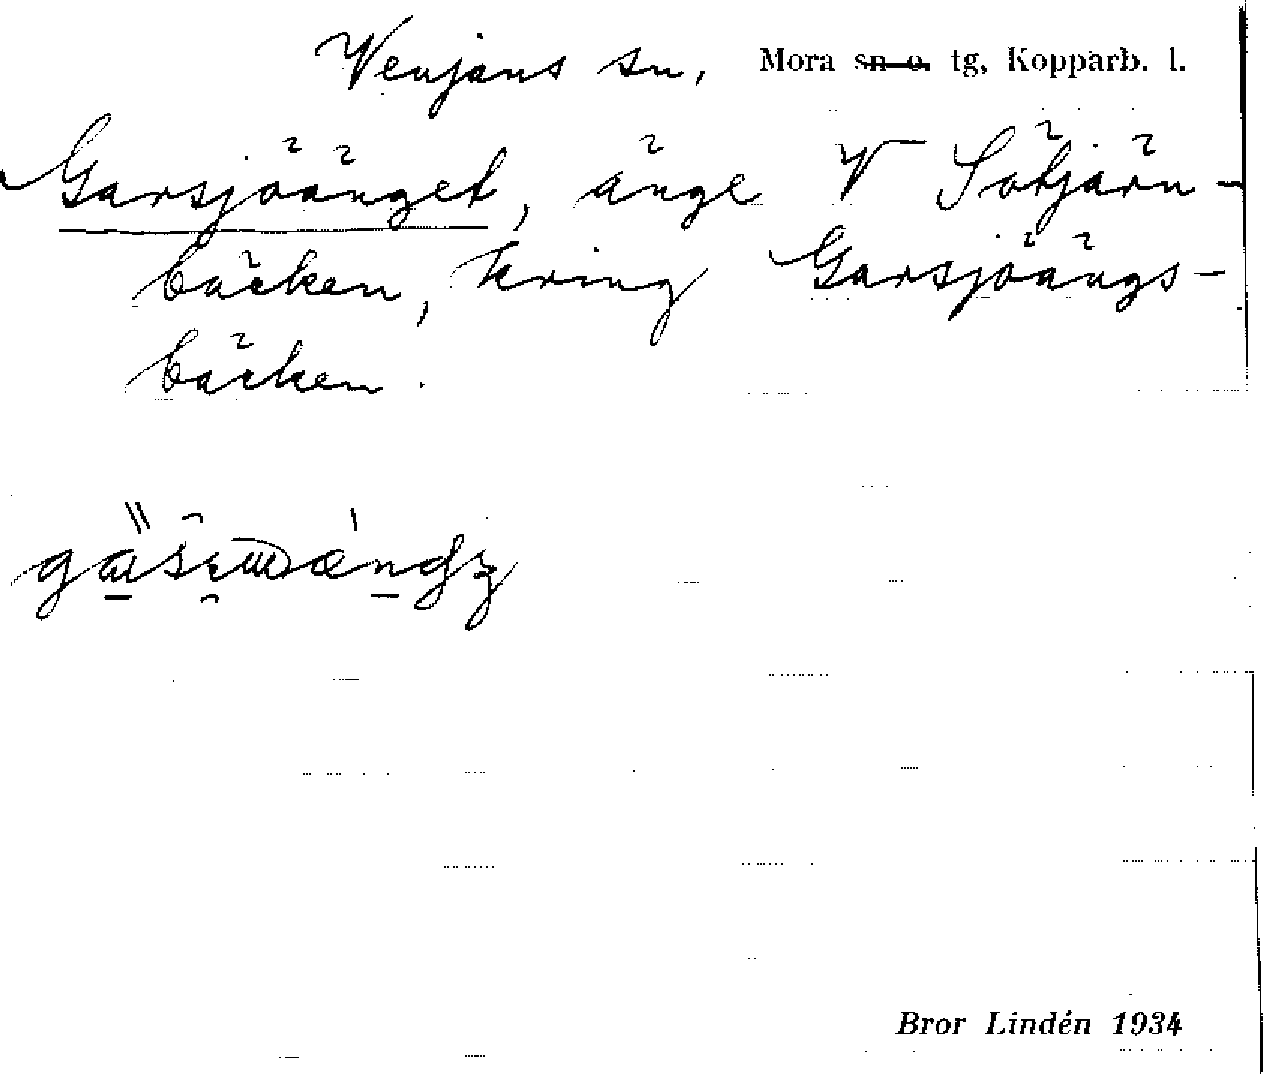 Venjans sn, Mora sn o. tg, Kopparb. l.
Garsjöänget, änge V Sötjärn-
bäcken, kring Garsjöängs-
bäcken.
Bror Lindén 1934